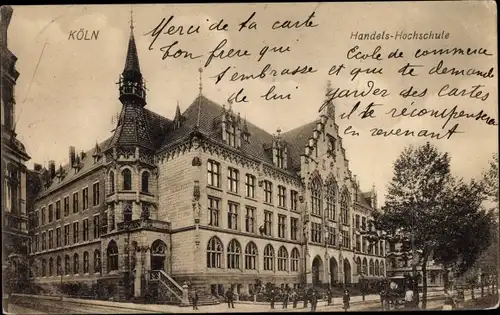 KÖLN
Handels-Hochschule
Merci de ta carte
ton frère que
t'embrasse et que te demande
de lui garder des cartes
il te récompensera
en revenant
Ecole de commerce